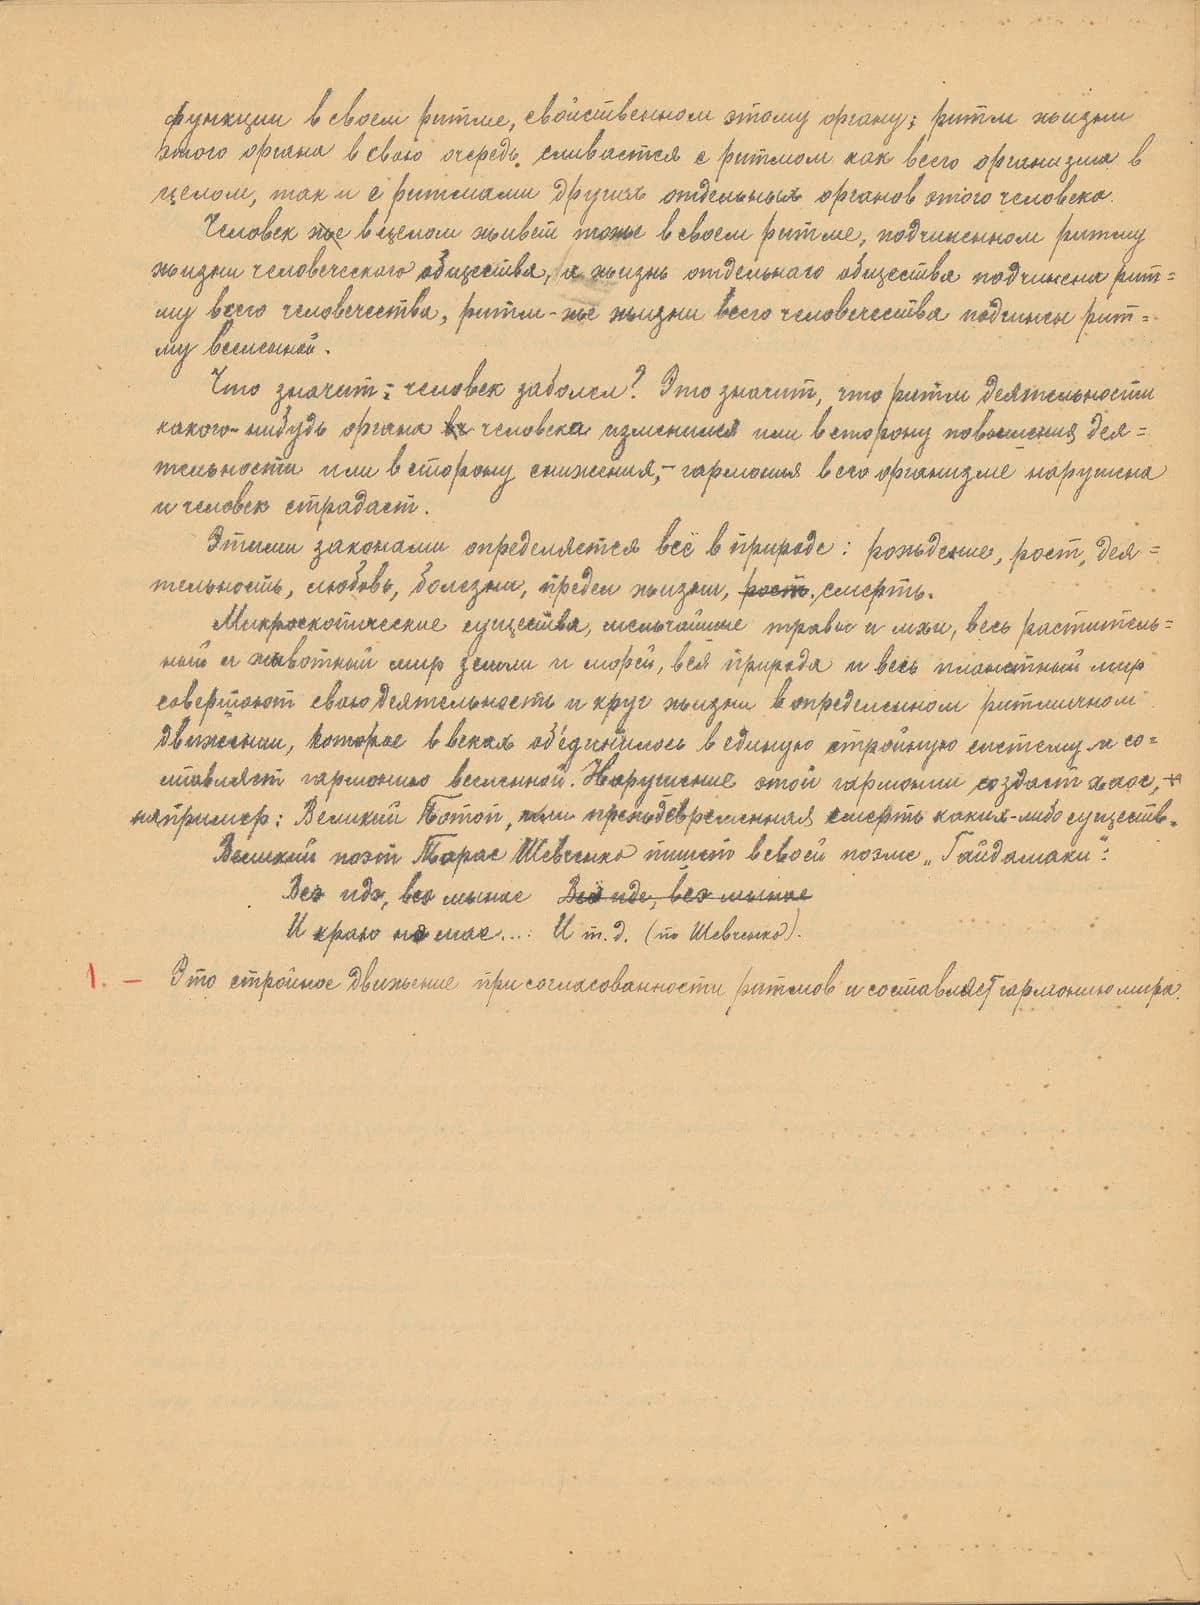 функции в своем ритме, свойственном этому органу; ритм жизни
этого органа в свою очередь сливается с ритмом как всего организма в
целом, так и с ритмами других отдельных органов этого человека.
Человек же в целом живет тоже в своем ритме, подчиненном ритму
жизни человеческого общества, а жизнь отдельнаго общества подчинена рит=
му всего человечества, ритм - же жизни всего человечества подчинен рит=
му вселенной.
Что значит: человек заболел? Это значит, что ритм деятельности
какого-нибудь органа человека изменился или в сторону повышения дея=
тельности или в сторону снижения, - гармония в его организме нарушена
и человек страдает.
Этими законами определяется всё в природе: рождение, рост, дея=
тельность, любовь, болезни, предел жизни, рост, смерть.
Микроскопические существа, мельчайшие травы и мхи, весь раститель=
ный и животный мир земли и морей, вся природа и весь планетный мир
совершают свою деятельность и круг жизни в определенном ритмичном
движении, которое в веках об'единилось в единую стройную систему и со=
ставляет гармонию вселенной. Нарушение этой гармонии создает хаос, -
например: Великий Потоп, или преждевременная смерть каких-либо существ.
Великий поэт Тарас Шевченко пишет в своей поэме „Гайдамаки":
Всэ идэ, всэ мынае Всё иде, всэ мынае
И краю нэмае... И т.д. (по Шевченко).
1. - Это стройное движение при согласованности ритмов и составляет гармонию мира.